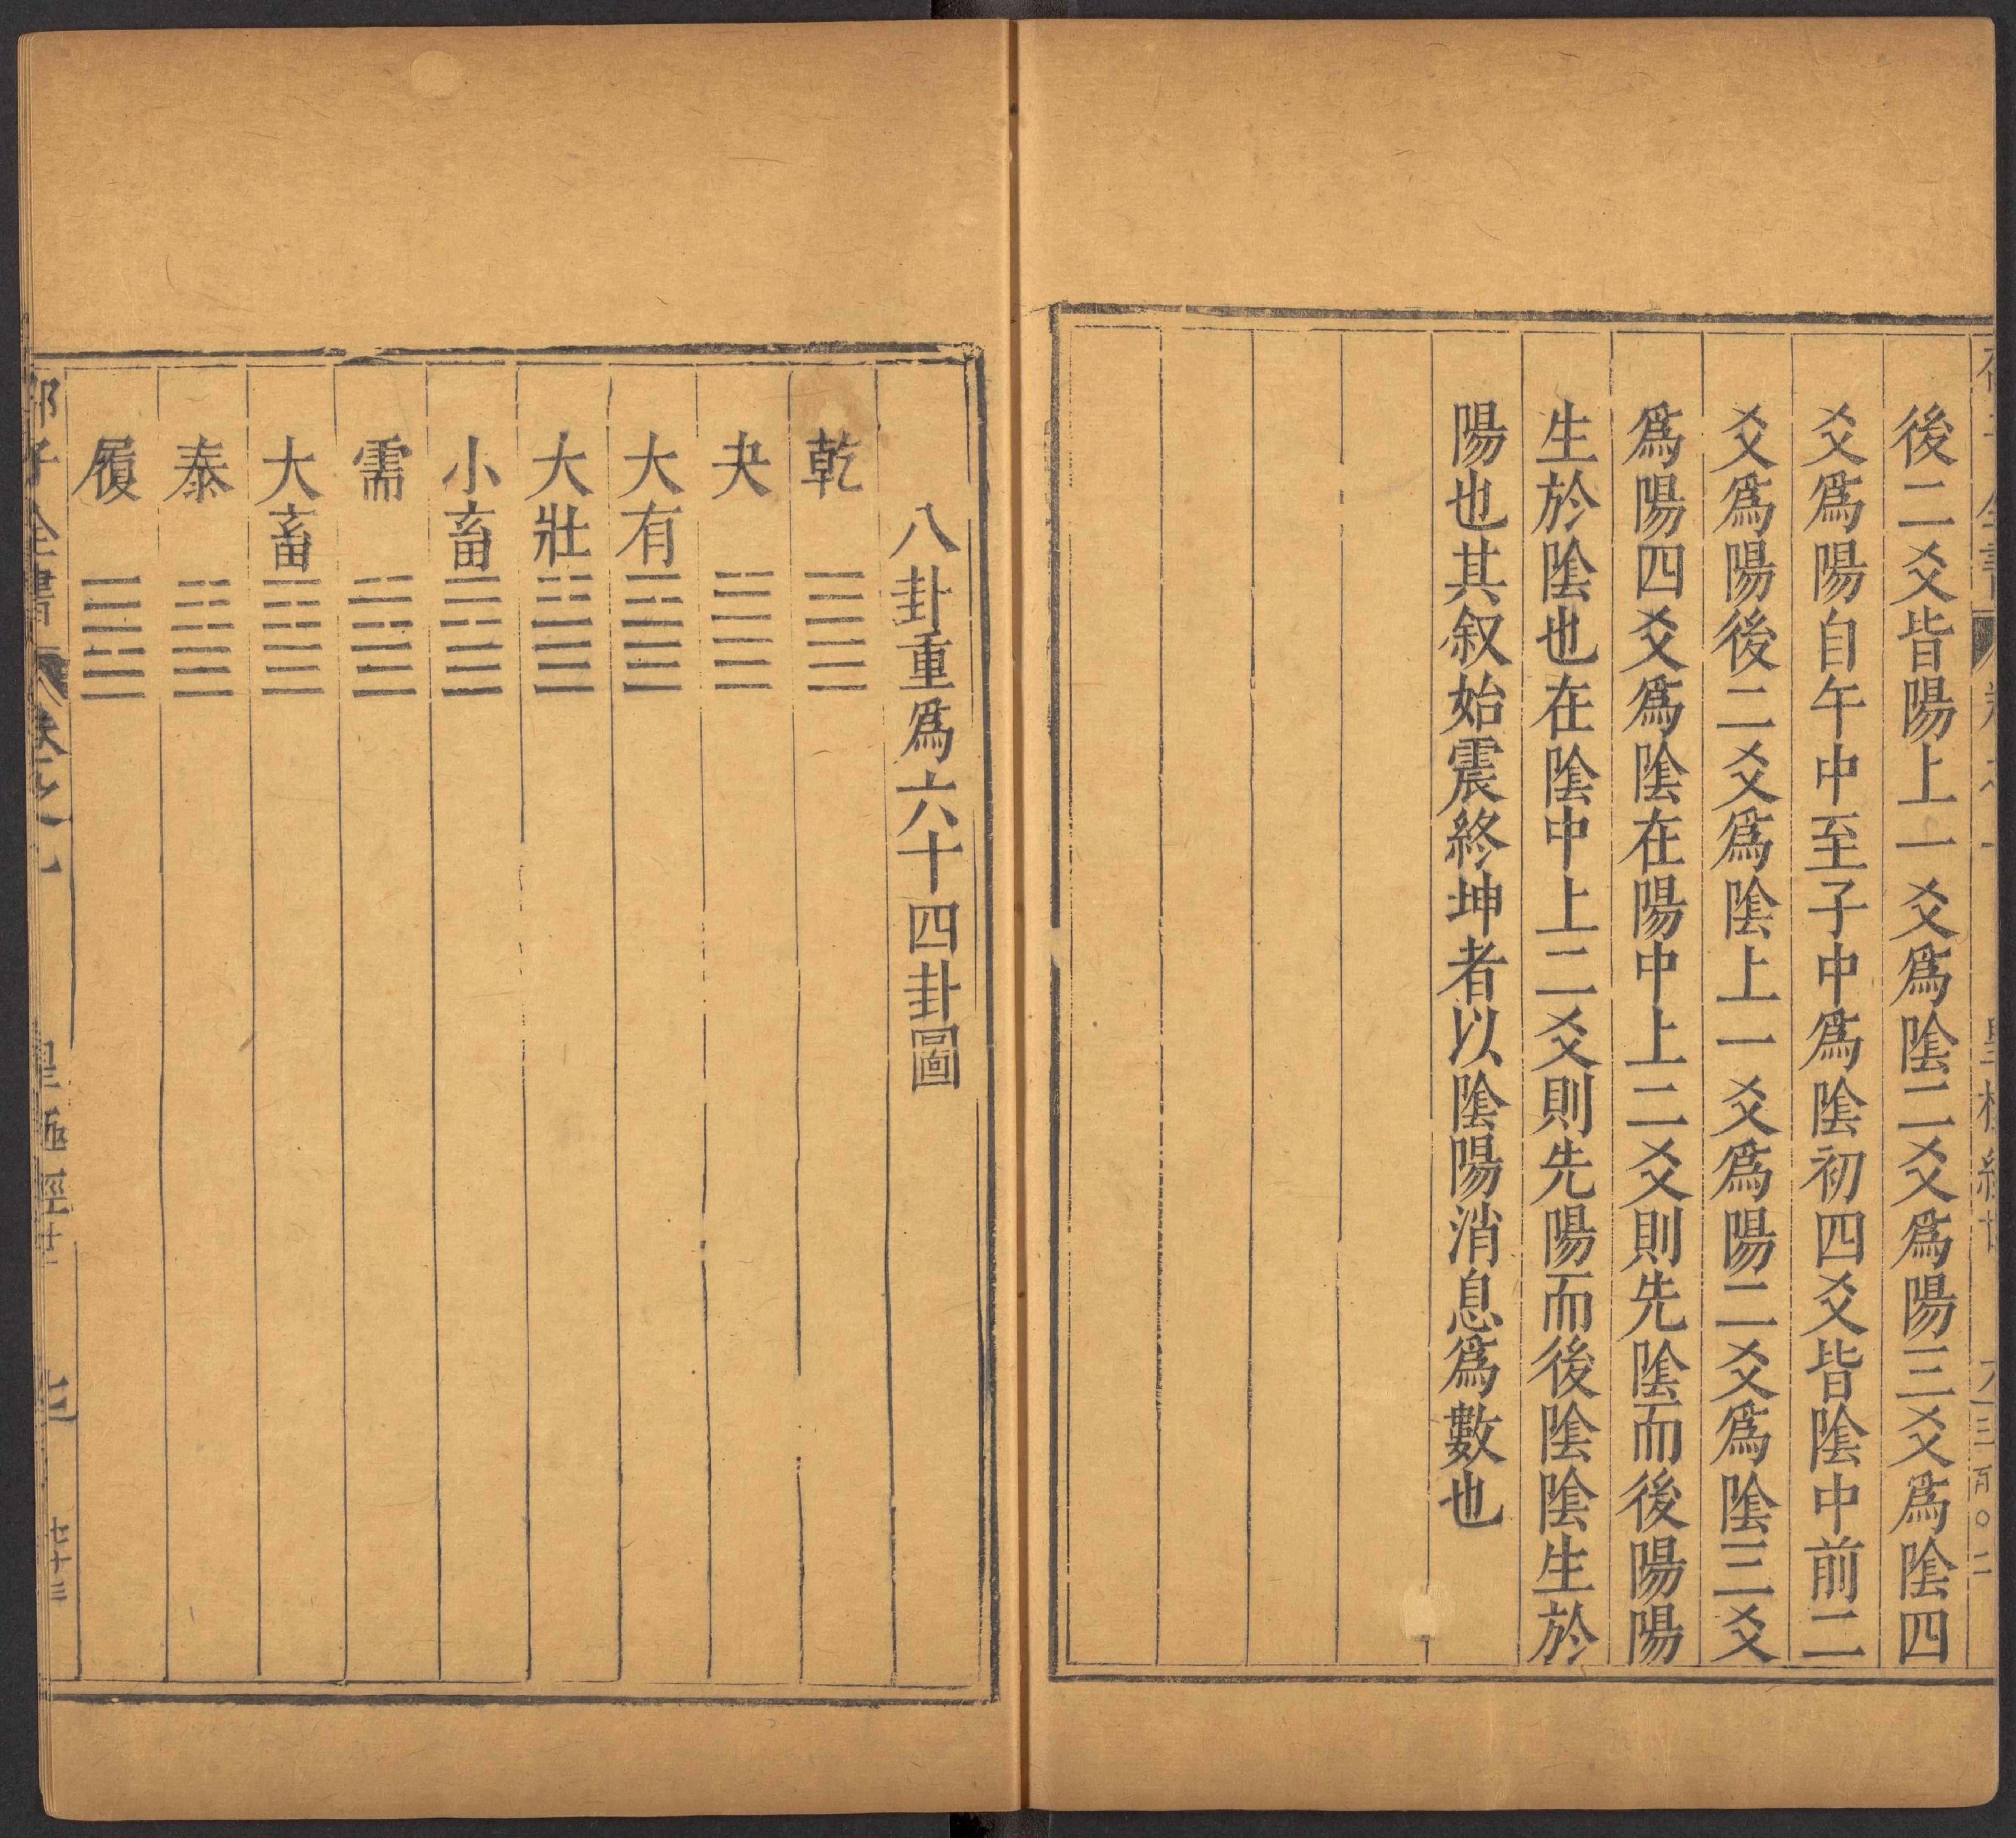 後二爻皆陽上一爻爲陰二爻爲陽三爻爲陰四
爻爲陽自午中至子中爲陰初四爻皆陰中前二
爻爲陽後二爻爲陰上一爻爲陽二爻爲陰三爻
爲陽四爻爲陰在陽中上二爻則先陰而後陽陽
生於陰也在陰中上二爻則先陽而後陰陰生於
陽也其叙始震終坤者以陰陽消息爲數也
八卦重爲六十四卦圖
乾 ䷀
夬 ䷪
大有 ䷍
大壯 ䷡
小畜 ䷈
需 ䷄
大畜 ䷙
泰 ䷊
履 ䷉
邵子全書 卷之一 皇極經世 七十三